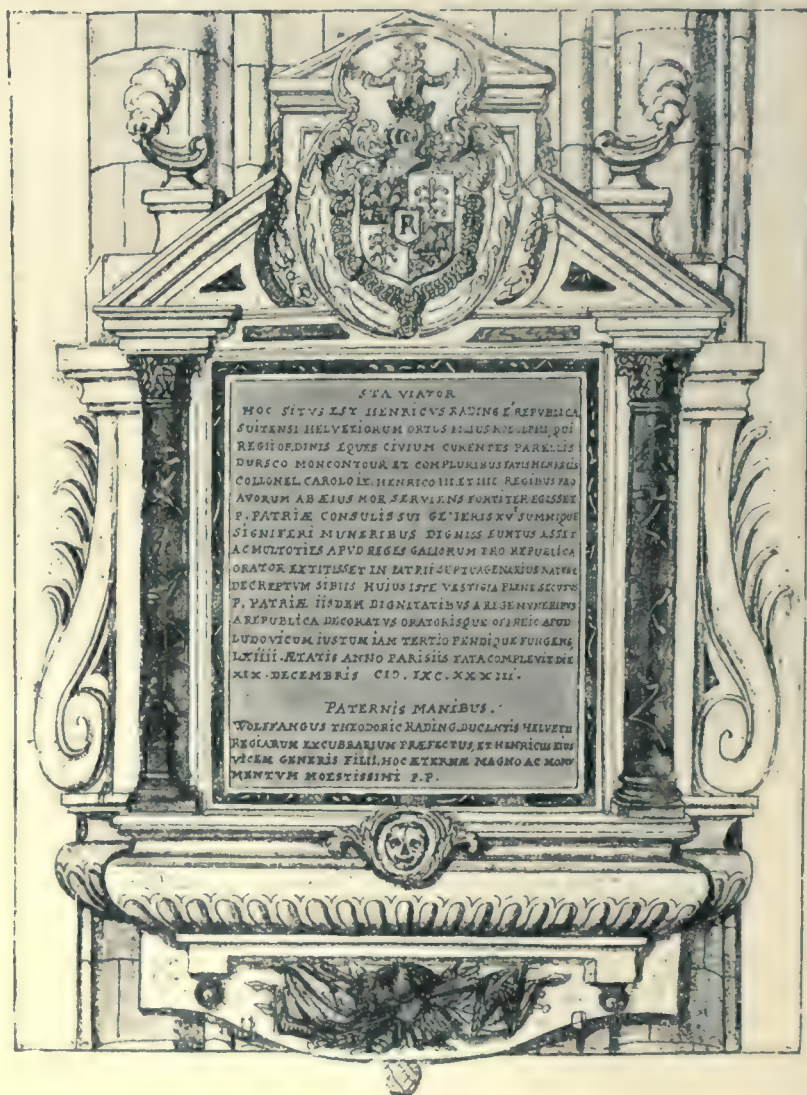 R
STA VIATOR
HOC SITVS EST HENRICVS RADING E REPVBLICA
SUITENSI HELVETIORUM ORTUS FILIUS QUI
REGII ORDINIS EQUES CIVIUM CURENTES PARELLIS
DURSCO MONCONTOUR ET COMPLURIBUS
COLLONEL CAROLO IX. HENRICO III. ET IIII. REGIBUS PRO
AVORUM AB EIUS MOR SERVIENS FORTITER EGISSET
P. PATRIÆ CONSULIS SUI GENERIS XV SUMNIQUE
SIGNIFERI MUNERIBUS DIGNISS FUNTUS ASSET
AC MULTOTIES APVD REGES GALIORUM PRO REPUBLICA
ORATOR EXTITISSET IN PATRII SEPTUAGENARIUS
DECREPTVM SIBIIS HUIUS ISTE VESTIGIA PLENE SECUTUS
P. PATRIÆ IISDEM DIGNITATIBVS A REGE MVNERIBVS
A REPVBLICA DECORATVS ORATORISQUE APUD
LUDOVICUM IUSTUM IAM TERTIO PENDIQUE FUNGENS
LXIIII. ÆTATIS ANNO PARISIIS FATA COMPLEVIT DIE
XIX. DECEMBRIS CIↃ. IXC. XXXIII.
PATERNIS MANIBUS.
WOLFFANGUS THEODORIC RADING. DUCENTIS HELVETII
REGIARUM EXCUBBARIUM PRÆFECTUS, ET HENRICUS EIUS
VICEM GENERIS FILII. HOC ÆTERNÆ MAGNO AC MONU
MENTVM MOESTISSIMI P.P.